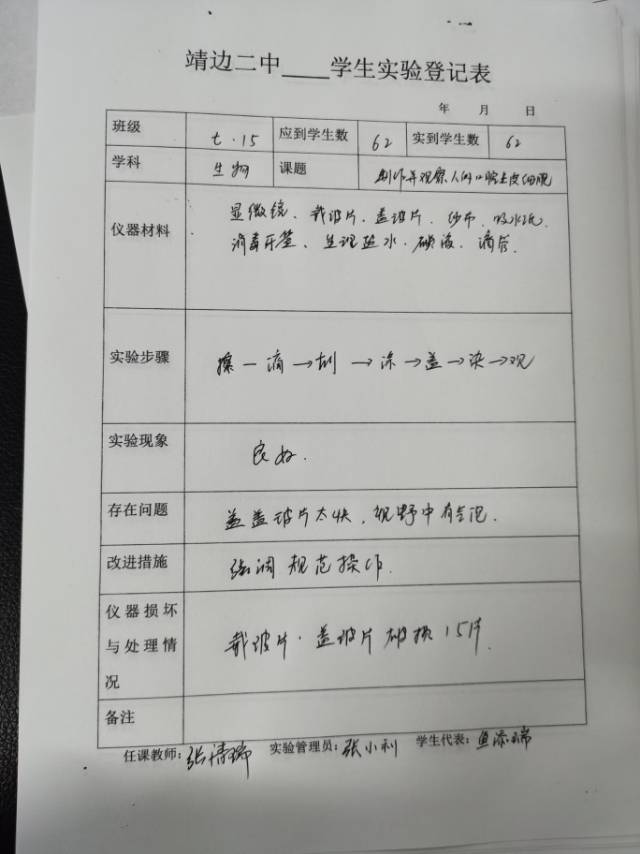 靖边二中____学生实验登记表
年 月 日
班级 七·15 应到学生数 62 实到学生数 62
学科 生物 课题 制作并观察人的口腔上皮细胞
仪器材料 显微镜、载玻片、盖玻片、纱布、吸水纸、
消毒牙签、生理盐水、碘液、滴管.
实验步骤 擦一滴→刮→涂→盖→染→观
实验现象 良好.
存在问题 盖盖玻片太快,视野中有气泡.
改进措施 强调规范操作.
仪器损坏
与处理情
况
载玻片、盖玻片破损15片
备注
任课教师:张清瑞 实验管理员:张小利 学生代表:鱼添瑞